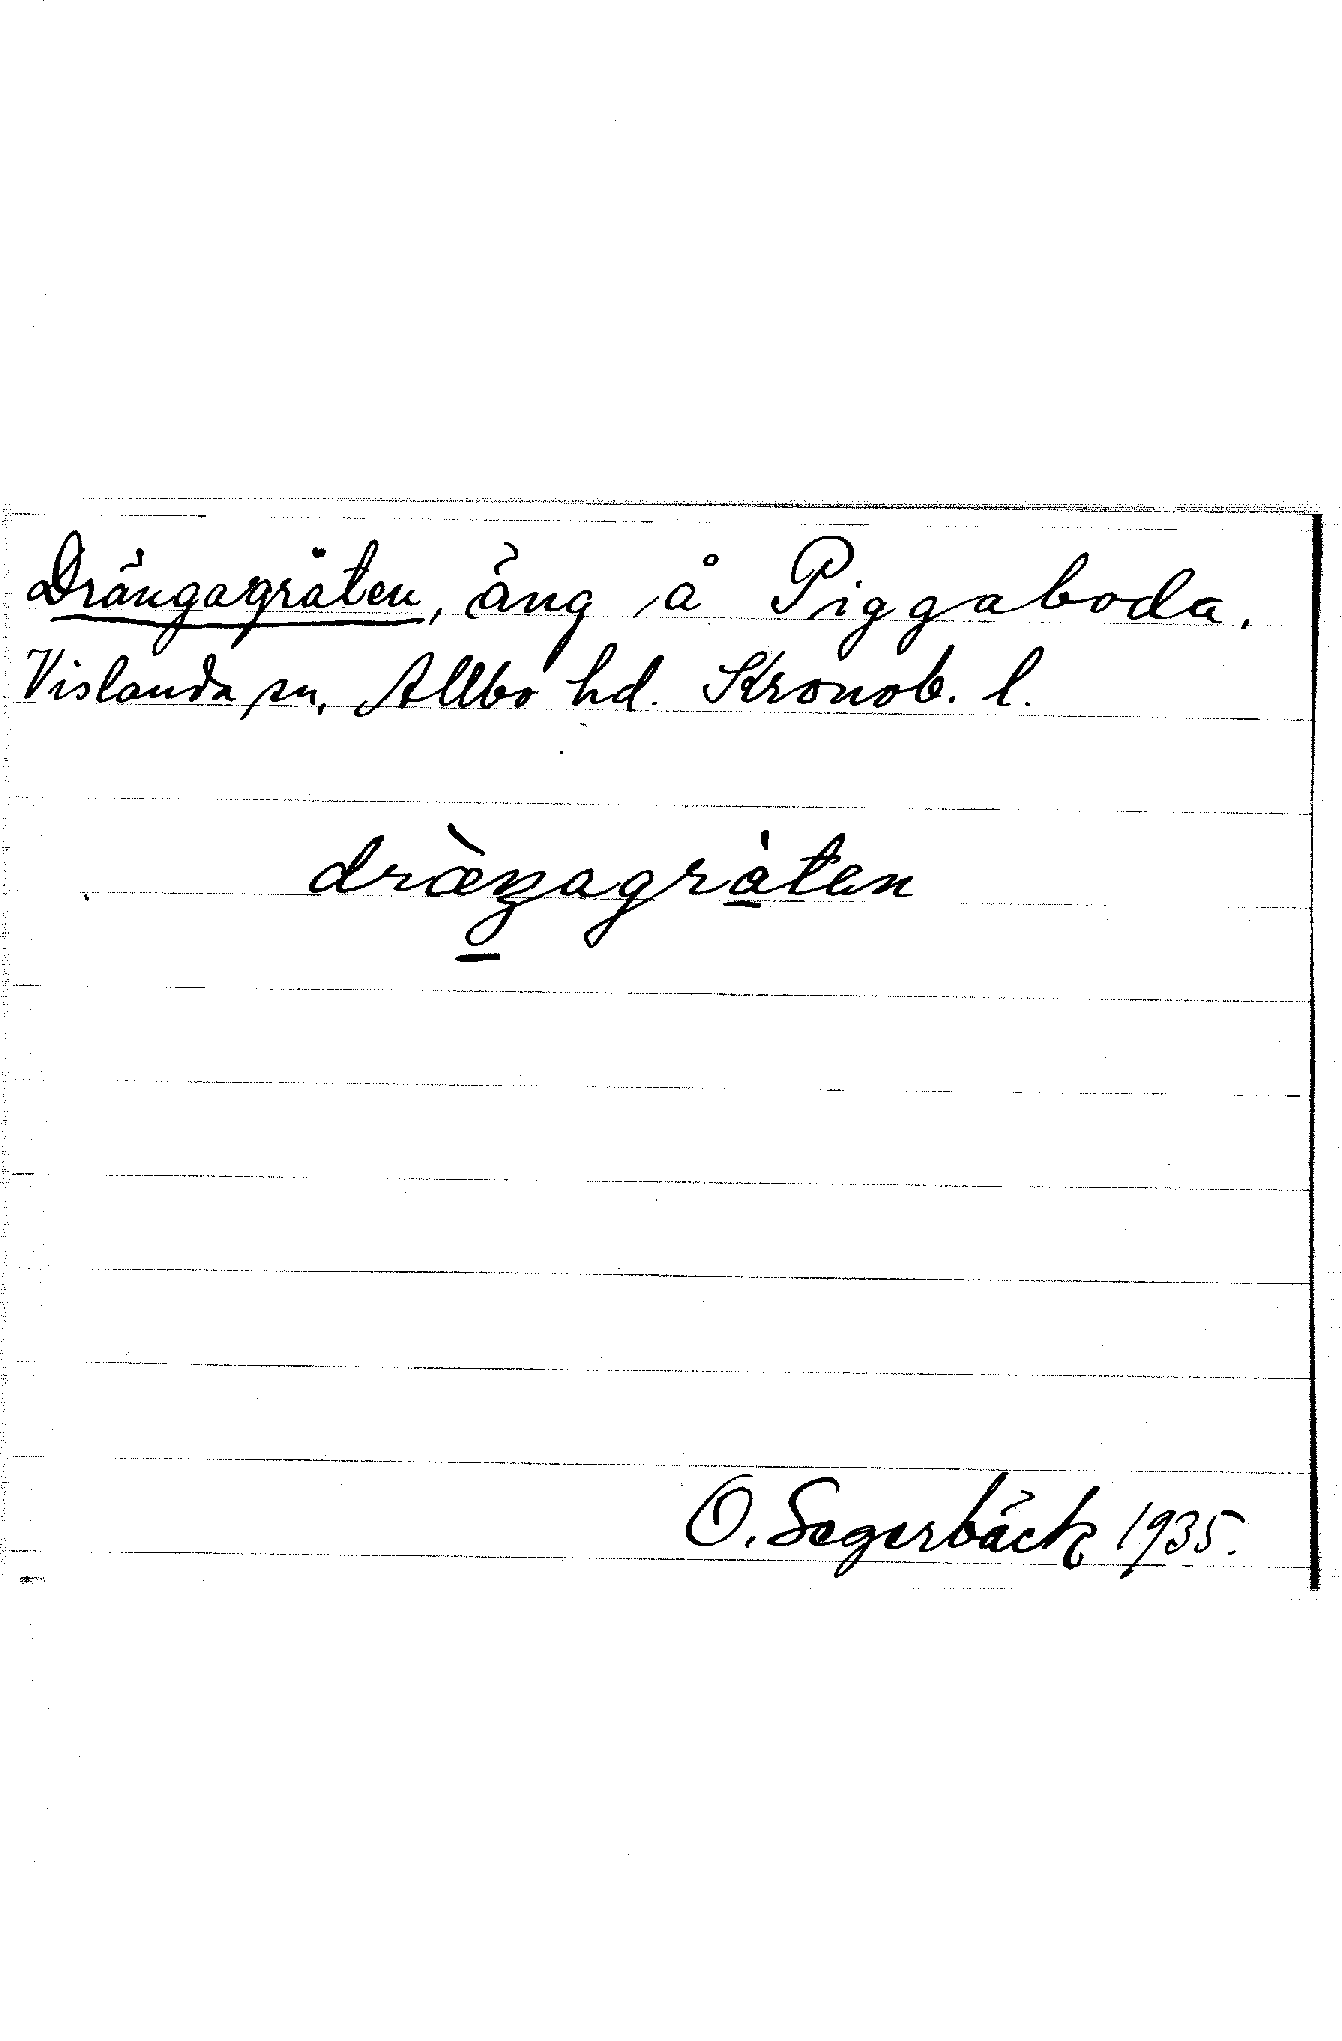 Drängagråten, äng å Piggaboda.
Vislanda sn. Allbo hd. Kronob. l.
dræ̀ŋagra̠̍ten
O. Segerbäck 1935.